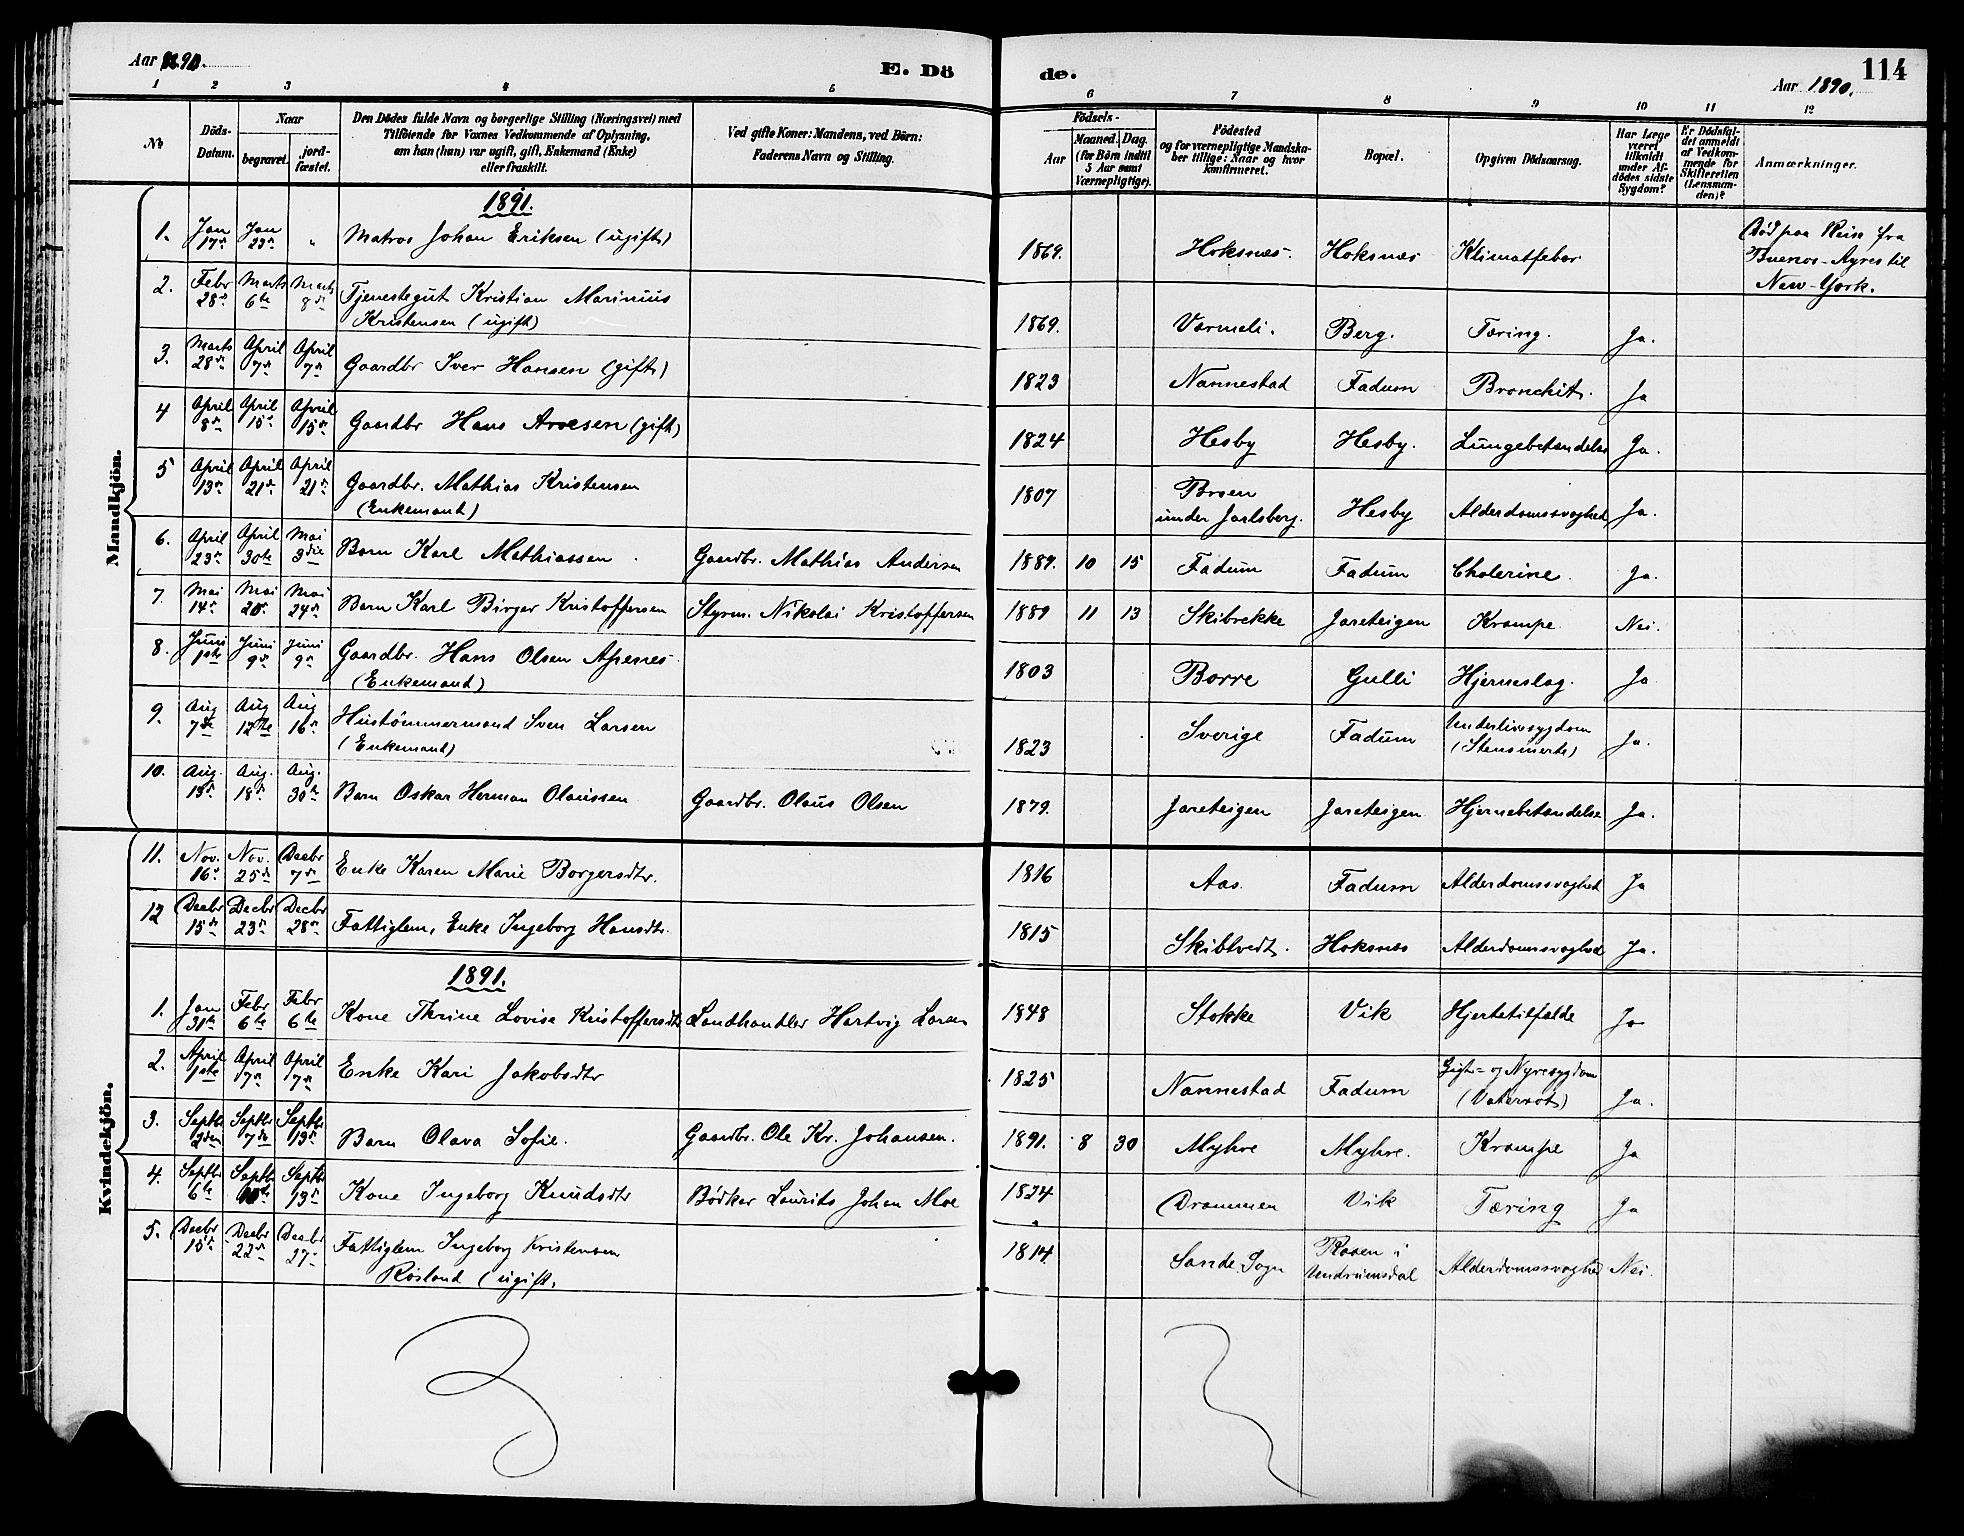 Aar 1890.
E. Dö
de.
Aar 1890.
114
1 2 3 4 5 6 7 8 9 10 11 12
No
Döds-Datum.
Naar
begravet.
jord-fæstet.
Den Dödes fulde Navn og borgerlige Stilling (Næringsvei) med
Tilföiende for Voxnes Vedkommende af Oplysning,
om han (hun) var ugift, gift, Enkemand (Enke)
eller fraskilt.
Ved gifte Koner: Mandens, ved Börn:
Faderens Navn og Stilling.
Födsels-
Aar
Maaned. Dag.
(for Börn indtil
5 Aar samt
Værnepligtige).
Födested
og for værnepligtige Mandska-
ber tillige: Naar og hvor
konfirmeret.
Bopæl.
Opgiven Dödsaarsag.
Har Læge
været
tilkaldt
under Af-
dödes sidste
Sygdom?
Er Dödsfal-
det anmeldt
af Vedkom-
mende for
Skifteretten
(Lensman-
den)?
Anmærkninger.
Mandkjön.
1891.
1. Jan 17de Jan 23de " Matros Johan Eriksen (ugift) 1869. Hoksnæs. Hoksnæs Klimatfeber Död paa Reise fra
Buenos-Ayres til
New-York.
2. Febr 28de Marts 6te Marts 8de Tjenestegut Kristian Marinius
Kristensen (ugift) 1869. Varmeli. Berg. Tæring. Ja.
3. Marts 28de April 7de April 7de Gaardbr Iver Hansen (gift) 1823 Nannestad Fadum Bronchit. Ja
4 April 8de April 15de April 15de Gaardbr Hans Arvesen (gift) 1824 Hesby Hesby. Lungebetændelse Ja.
5 April 13de April 21de April 21de Gaardbr. Mathias Kristensen
(Enkemand) 1807 Broen
under Jarlsberg. Hesby Alderdomssvaghed Ja.
6. April 23de April 30te Mai 3die Barn Karl Mathiassen. Gaardbr. Mathias Andersen 1889. 10 15 Fadum Fadum Cholerine. Ja.
7. Mai 14de Mai 20de Mai 24de Barn Karl Birger Kristoffersen Styrm. Nikolai Kristoffersen 1889 11 13 Skibrekke Jareteigen Krampe. Nei.
8. Juni 1ste Juni 9de Juni 9de Gaardbr. Hans Olsen Apenes
(Enkemand) 1803 Borre Gulli Hjerneslag. Ja
9. Aug 7de Aug 12te Aug 16de Hustömmermand Sven Larsen
(Enkemand) 1823 Sverige Fadum Underlivssygdom
(Stensmerte) Ja.
10. Aug. 13de Aug. 18de Aug. 30te Barn Oskar Herman Olaussen Gaardbr. Olaus Olsen 1879. Jareteigen Jareteigen Hjernebetændelse Ja.
Kvindekjön.
11. Nov. 16de Nov. 25de Decbr 7de Enke Karen Marie Borgersdtr. 1816 Aas. Fadum Alderdomssvaghed Ja
12 Decbr 15de Decbr 23de Decbr 28de Fattiglem, Enke Ingeborg Hansdtr. 1815 Skibtvedt. Hoksnæs Alderdomssvaghed Ja.
1891.
1. Jan 31te Febr 6te Febr 6te Kone Thrine Lovise Kristoffersdtr Landhandler Hartvig Larsen 1848 Stokke Vik Hjertetilfælde Ja
2. April 1ste April 7de April 7de Enke Kari Jakobsdtr 1825 Nannestad Fadum Gigt- og Nyresygdom
(Vatersot) Ja.
3. Septbr 2den Septbr 7de Septbr 13de Barn Olava Sofie. Gaardbr. Ole Kr. Johansen. 1891. 8 30 Myhre Myhre. Krampe Ja
4. Septbr 6te Septbr Septbr 13de Kone Ingeborg Knudsdtr Bödker Laurits Johan Moe 1824 Drammen Vik Tæring Ja
5. Decbr 15de Decbr 22de Decbr 27de Fattiglem Ingeborg Kristensen
Rösland (ugift) 1814. Sande Sogn Roaen i
Undrumsdal Alderdomssvaghed Nei.